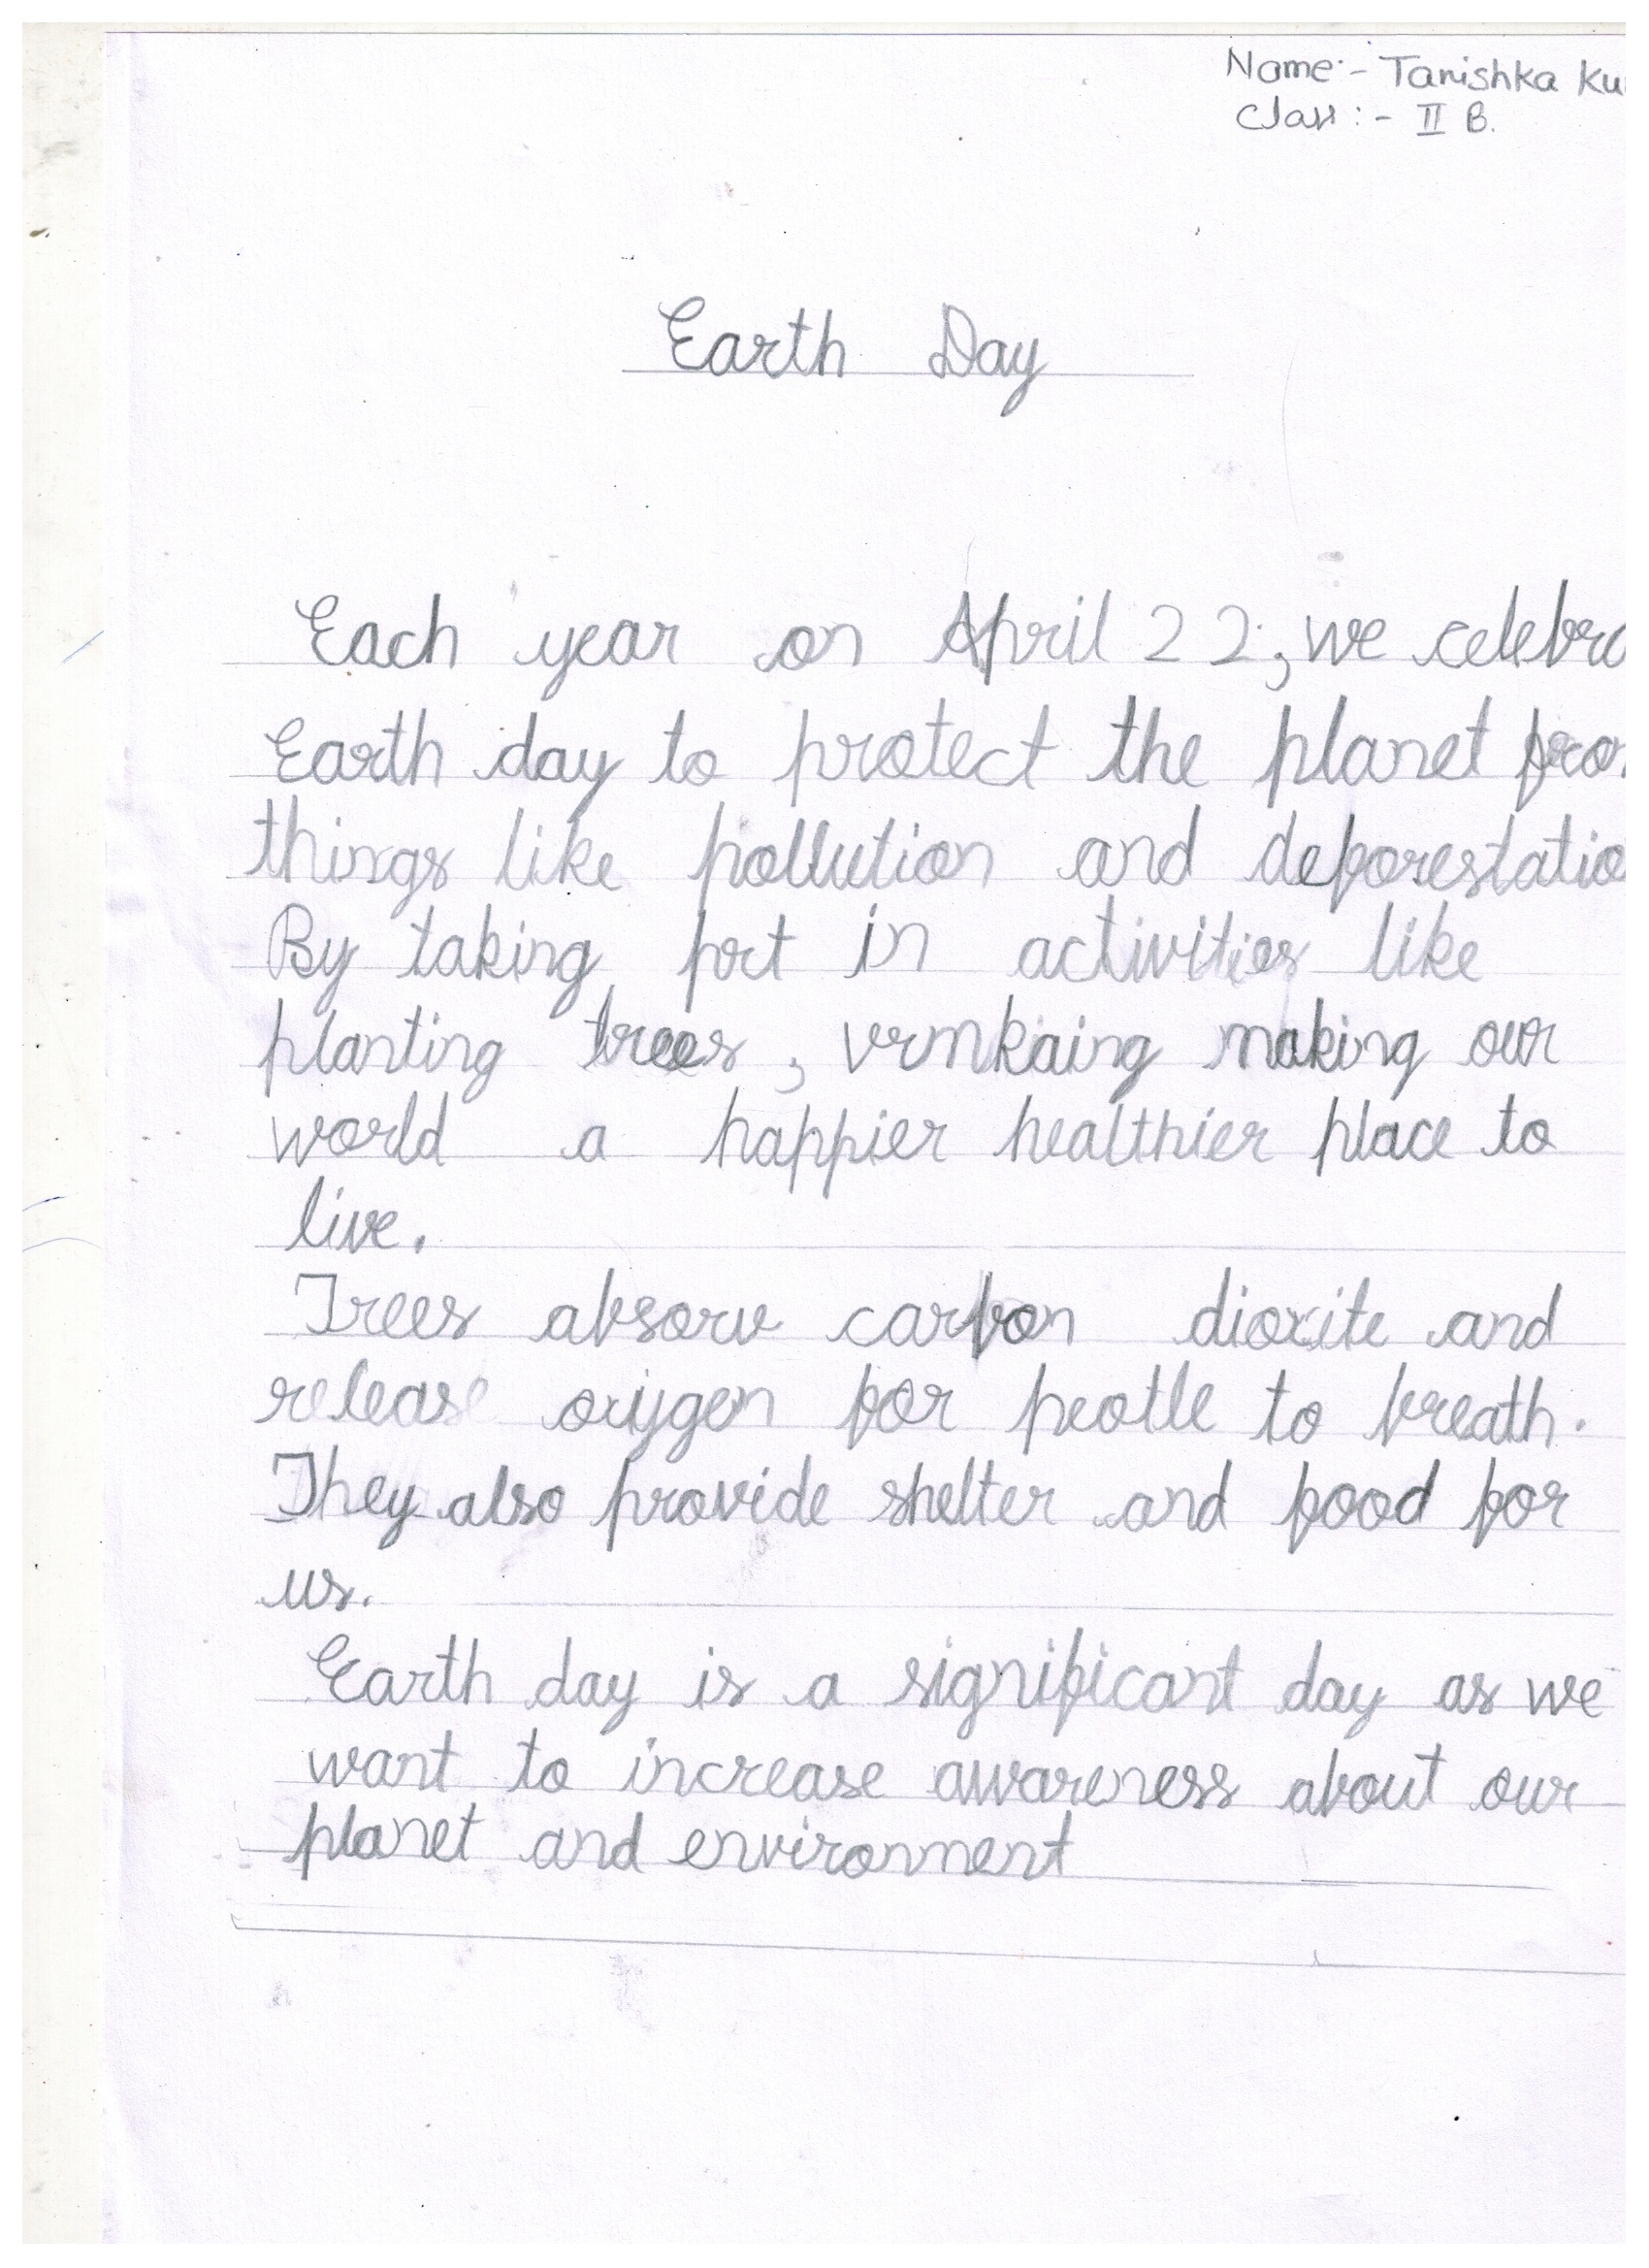 Name:- Tanishka Ku
Class:- II B.
Earth Day
Each year on April 22, we celebra
Earth day to protect the planet fro
things like pollution and deforestatio
By taking port in activities like
planting trees, vrmkaing making our
world a happier healthier place to
live.
Trees absorv carbon dioxite and
release oxygen for peotle to breath.
They also provide shelter and food for
us.
Earth day is a significant day as we
want to increase awareness about our
planet and environment